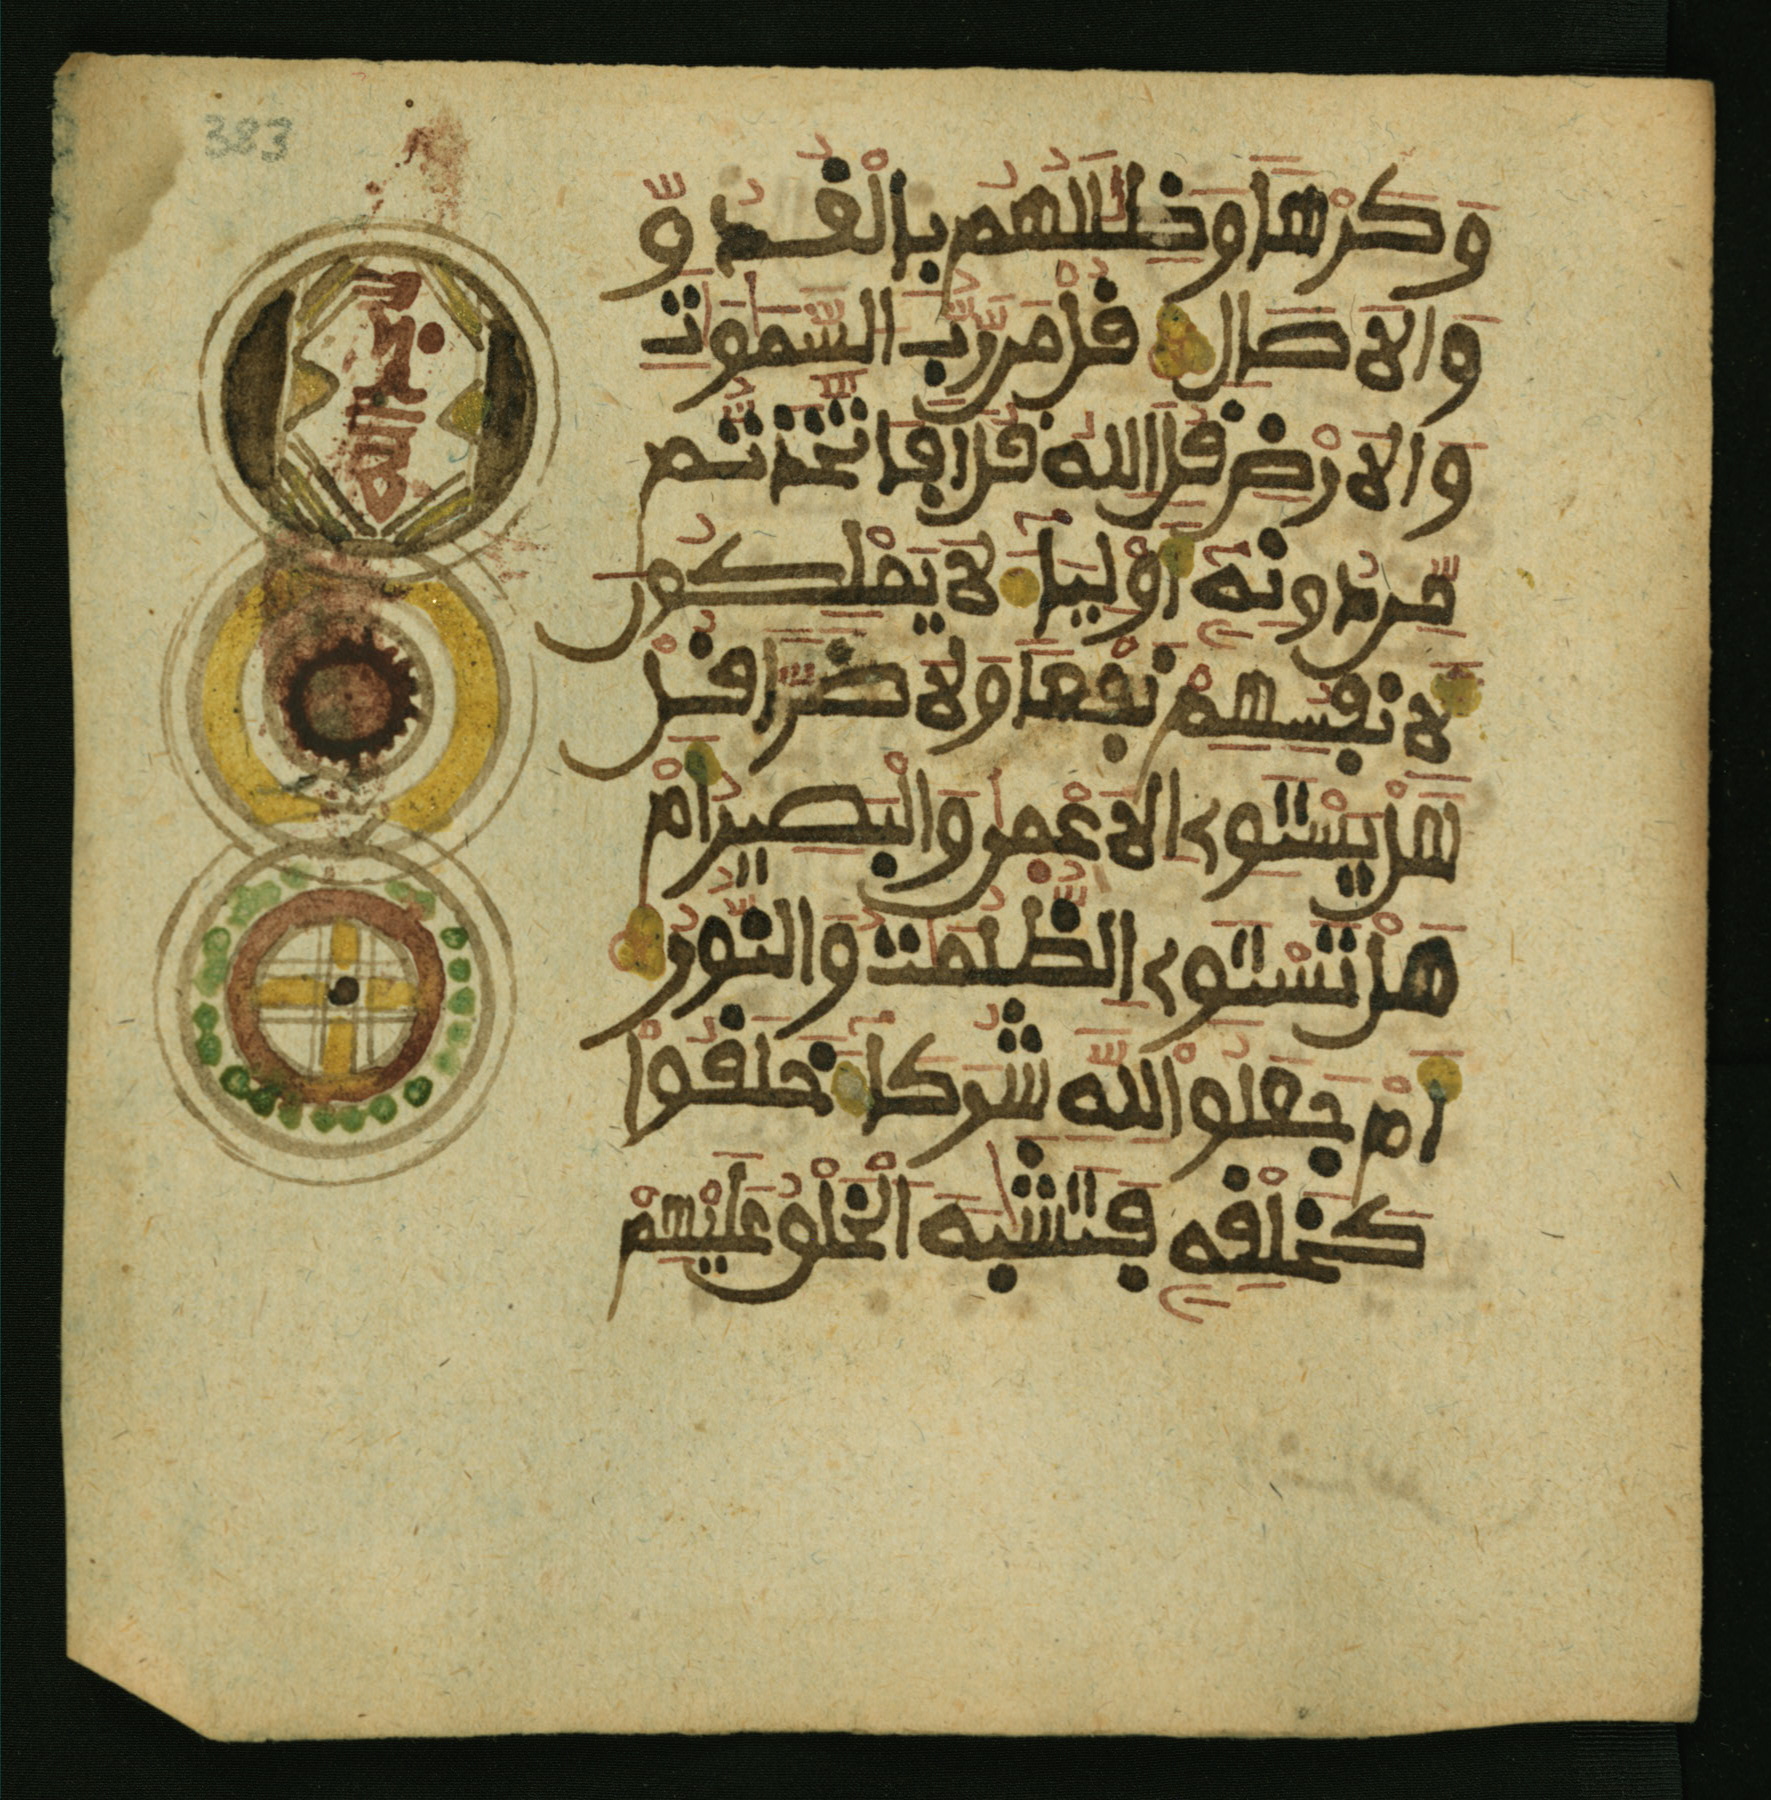 383
سجدة لله
وَكَرْهًا وَظِلَٰلُهُم بِالْغُدُوِّ
وَالَاصَالِ قُلْ مَن رَّبُّ السَّمَٰوَٰتِ
وَالَارْضِ قُلِ اللَّهُ قُلَ اَفَاتَّخَذتُّم
مِّن دُونِهِ أَوْلِيَآءَ لَا يَمْلِكُونَ
لِأَنفُسِهِمْ نَفْعًا وَلَا ضَرًّا قُلْ
هَلْ يَسْتَوِے الَاعْمَىٰ وَالْبَصِيرُ أَمْ
هَلْ تَسْتَوِے الظُّلُمَٰتُ وَالنُّورُ
أَمْ جَعَلُواْ لِلَّهِ شُرَكَآءَ خَلَقُواْ
كَخَلْقِهِ فَتَشَٰبَهَ الْخَلْقُ عَلَيْهِمْ